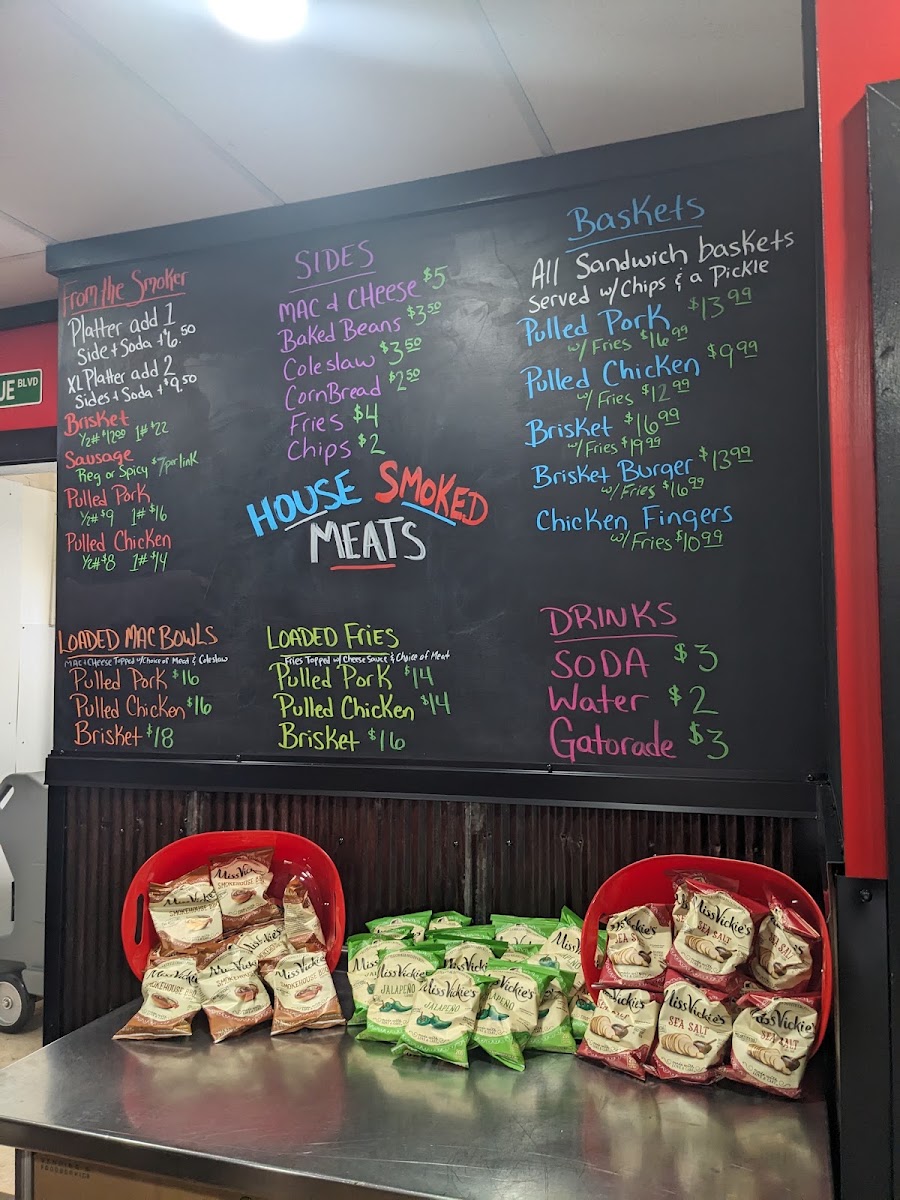 UE BLVD
From the Smoker
Platter add 1
Side + Soda +$6.50
XL Platter add 2
Sides + Soda +$9.50
Brisket
1/2# $12.00 1# $22
Sausage
Reg or Spicy $7 per link
Pulled Pork
1/2# $9 1# $16
Pulled Chicken
1/2# $8 1# $14
SIDES
MAC & CHeese $5
Baked Beans $3.50
Coleslaw $3.50
CornBread $2.50
Fries $4
Chips $2
HOUSE SMOKED
MEATS
Baskets
All Sandwich baskets
served w/Chips & a Pickle
Pulled Pork $13.99
w/Fries $16.99
Pulled Chicken $9.99
w/Fries $12.99
Brisket $16.99
w/Fries $19.99
Brisket Burger $13.99
w/Fries $16.99
Chicken Fingers
w/Fries $10.99
LOADED MAC BOWLS
MAC & CHeese Topped w/Choice of Meat & Coleslaw
Pulled Pork $16
Pulled Chicken $16
Brisket $18
LOADED Fries
Fries Topped w/ Cheese Sauce & Choice of Meat
Pulled Pork $14
Pulled Chicken $14
Brisket $16
DRINKS
SODA $3
Water $2
Gatorade $3
Miss Vickie's
SMOKEHOUSE BBQ
Miss Vickie's
JALAPEÑO
Miss Vickie's
SEA SALT